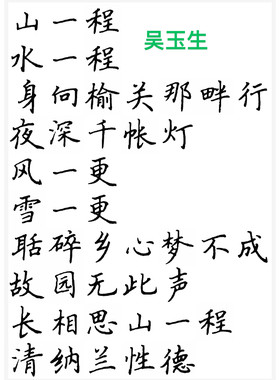 山一程
吴玉生
水一程
身向榆关那畔行
夜深千帐灯
风一更
雪一更
聒碎乡心梦不成
故园无此声
长相思山一程
清纳兰性德